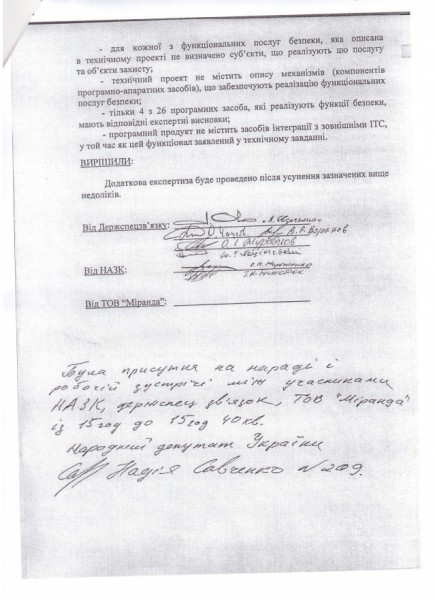 - для кожної з функціональних послуг безпеки, яка описана
в технічному проекті не визначено суб'єкти, що реалізують цю послугу
та об'єкти захисту;
- технічний проект не містить опису механізмів (компонентів
програмно-апаратних засобів), що забезпечують реалізацію функціональних
послуг безпеки;
- тільки 4 з 26 програмних засоба, які реалізують функції безпеки,
мають відповідні експертні висновки;
- програмний продукт не містить засобів інтеграції з зовнішніми ІТС,
у той час як цей функціонал заявлений у технічному завданні.
ВИРІШИЛИ:
Додаткова експертиза буде проведено після усунення зазначених вище
недоліків.
Від Держспецзв'язку:
Від НАЗК:
Від ТОВ "Міранда":
Була присутня на нараді і
робочій зустрічі між учасниками
НАЗК, держспец зв'язок, ТОВ "Міранда"
із 15 год до 15 год 40 хв.
Народний депутат України
Надія Савченко N 209.